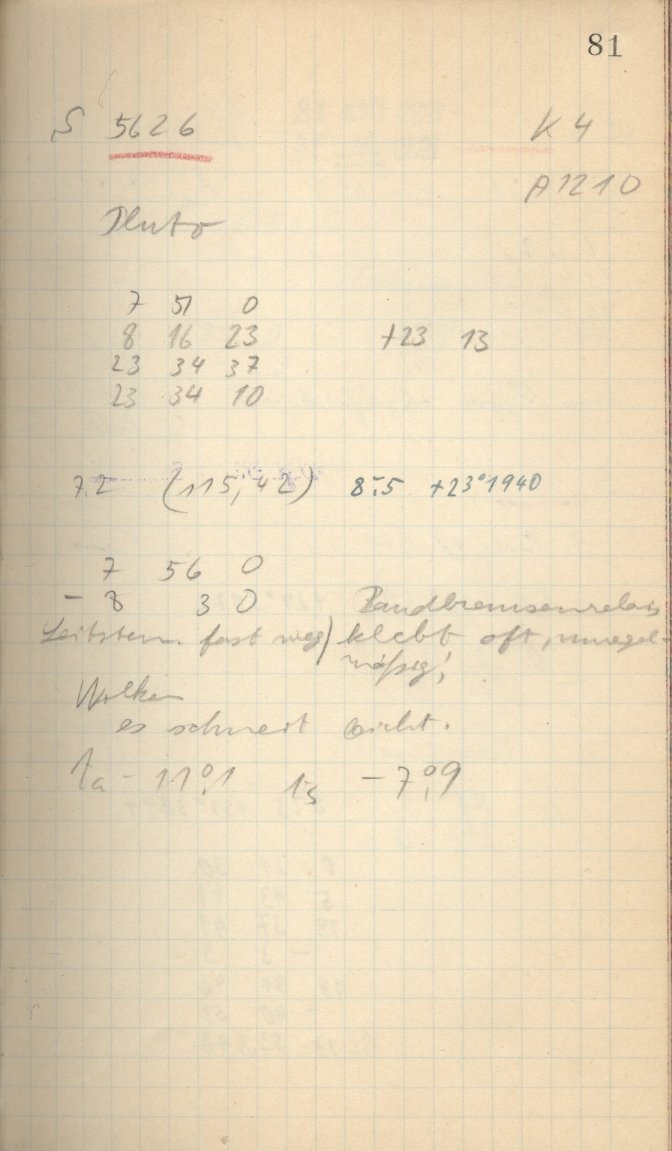 81
S 5626 K 4
A 1210
Pluto
7 51 0
8 16 23 +23 13
23 34 37
23 34 10
7.2 (115, 42) 8.5 +23° 1940
7 56 0
- 8 3 0
Leitstern fast weg) klebt oft, unregel-
mäßig!
Wolken
es schneit nicht.
ta - 11°,1 ts - 7°,9